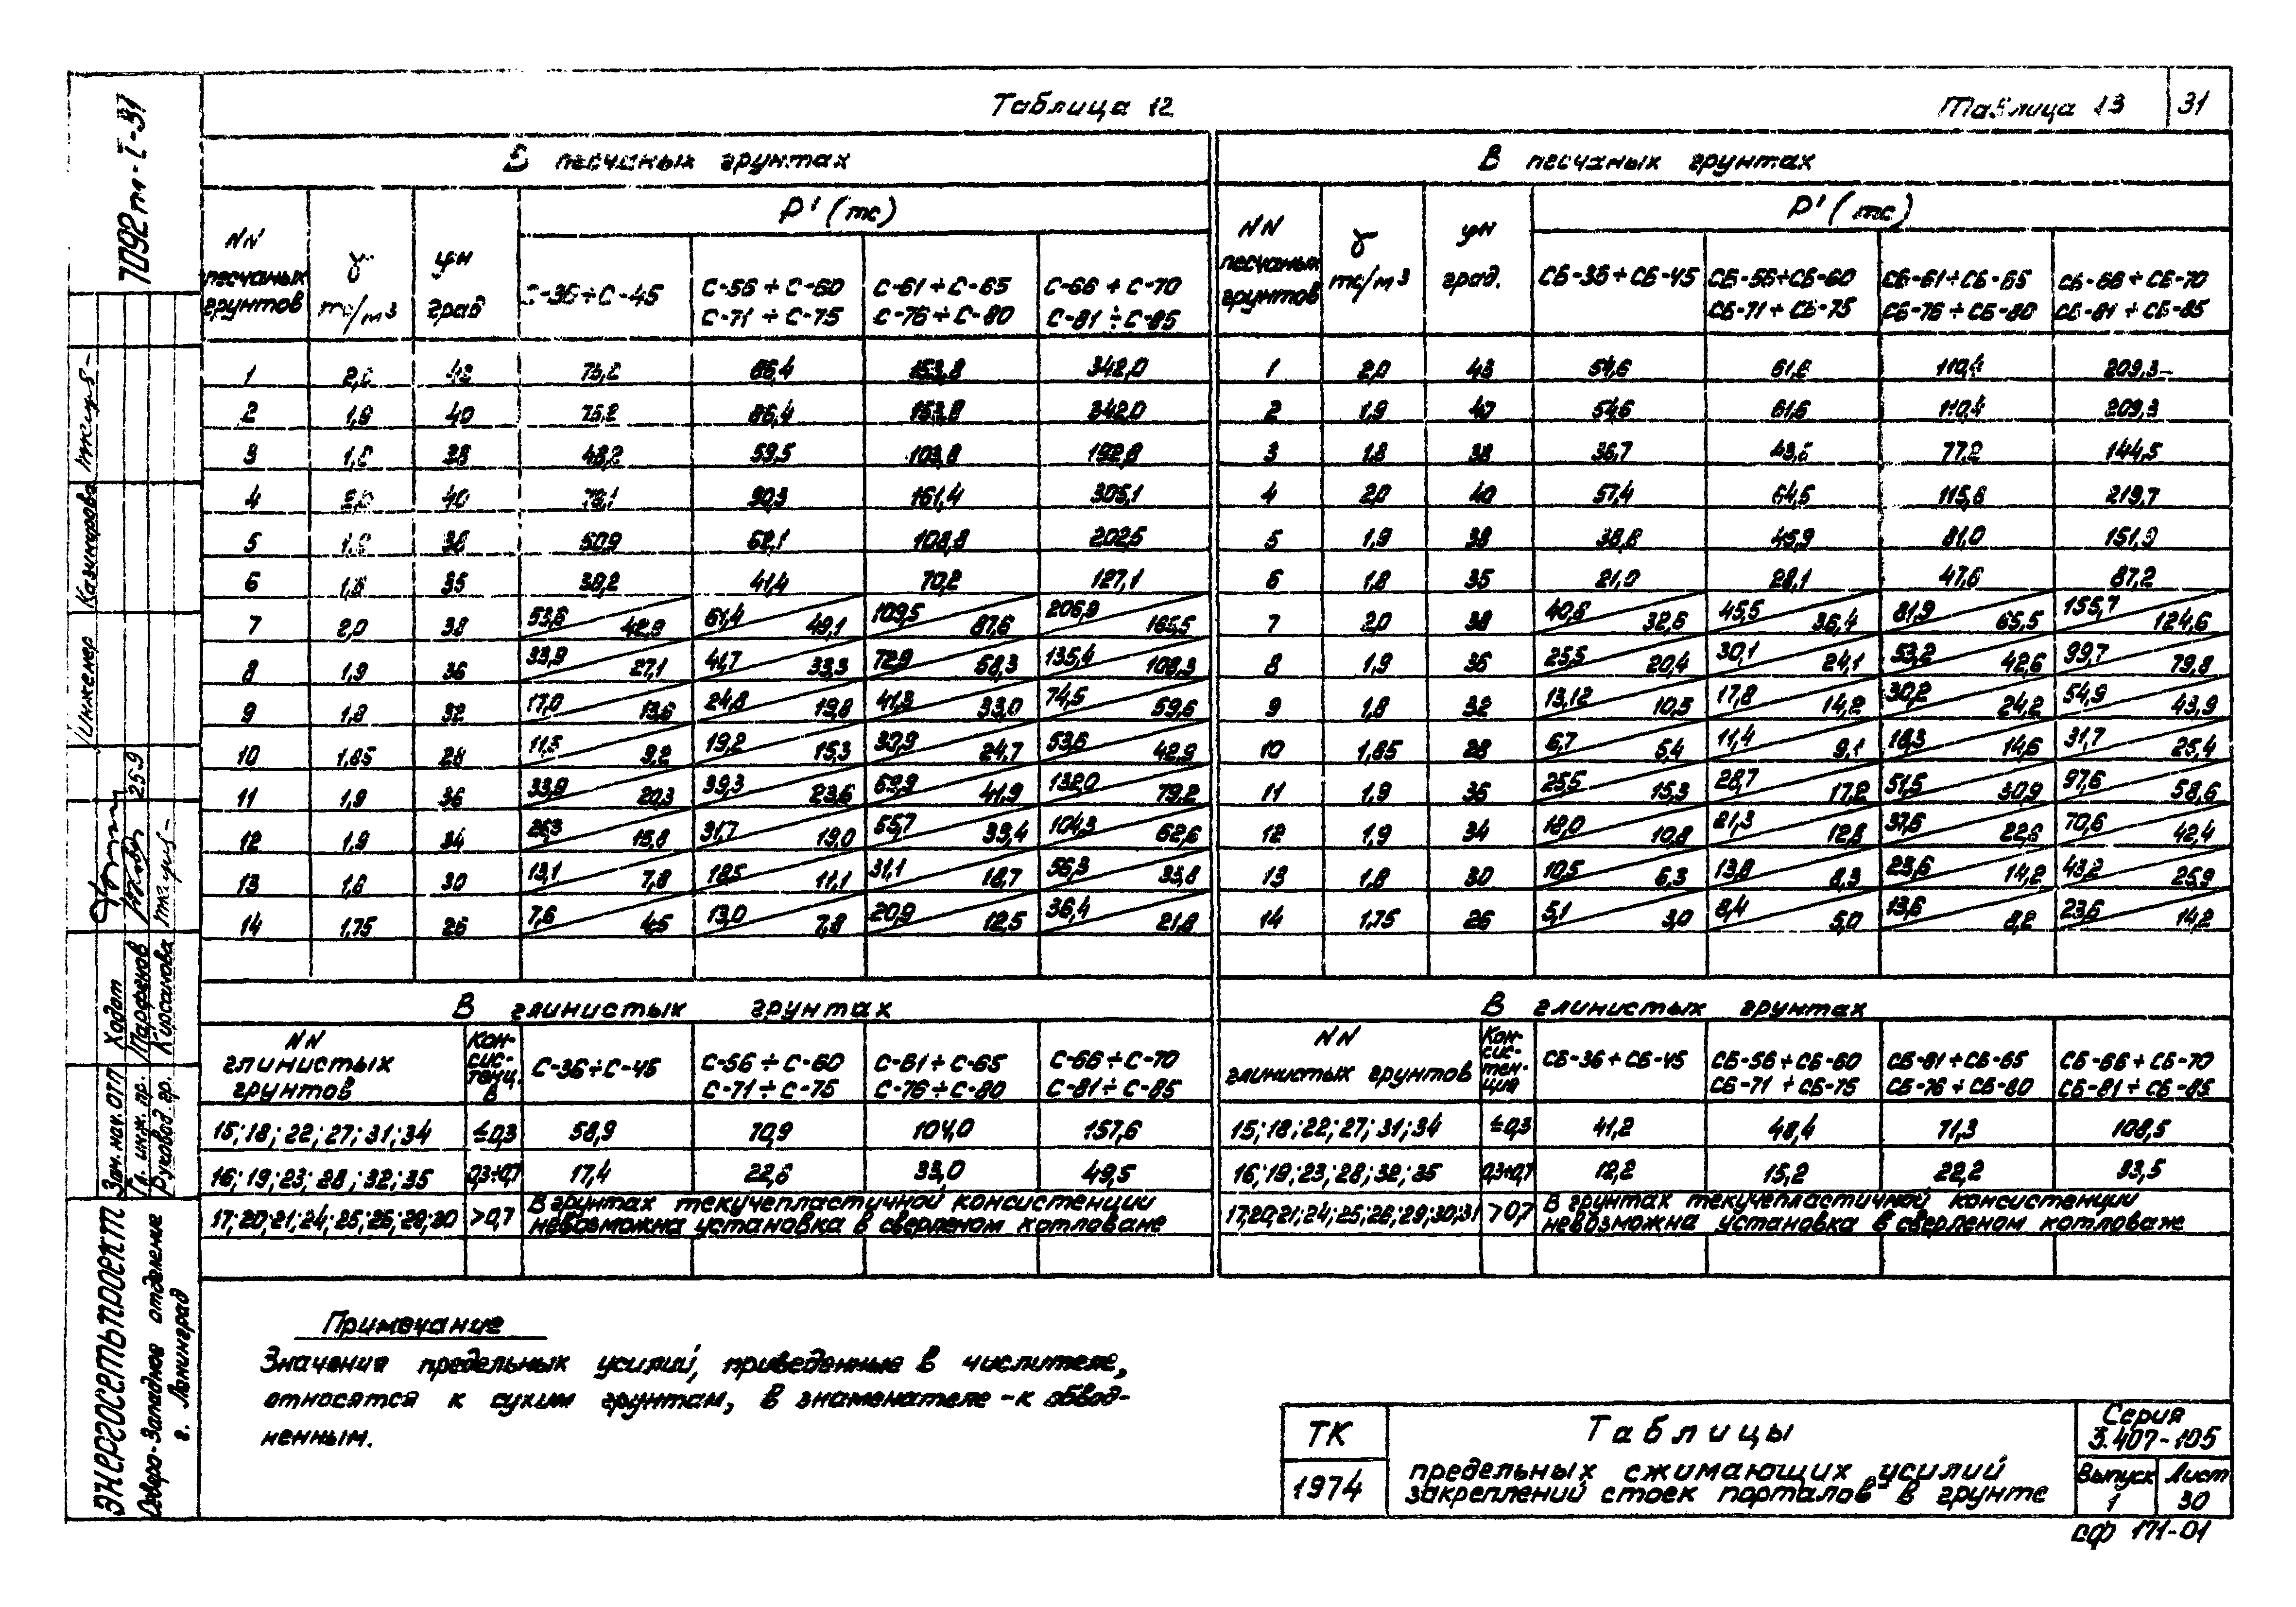 Таблица 12
Таблица 13
31
В песчаных грунтах
NN песчаных грунтов γ тс/м3 φн град P' (тс)
С-36÷С-45 С-56÷С-60 С-61÷С-65 С-66÷С-70
С-71÷С-75 С-76÷С-80 С-81÷С-85
1 2,0 75,2 153,8 342,0
2 1,9 40 75,2 86,4 153,8 342,0
3 1,8 38 48,2 59,5 103,8 192,8
4 2,0 40 90,3 161,4 305,1
5 1,9 38 50,9 62,1 108,8 202,5
6 1,8 35 41,4 70,2 127,1
7 2,0 38 53,6 42,9 61,4 49,1 109,5 87,6 206,9 165,5
8 1,9 36 33,9 27,1 41,7 33,3 72,9 58,3 135,4 108,3
9 1,8 32 17,0 13,6 24,8 19,8 41,3 33,0 74,5 59,6
10 1,85 28 11,5 9,2 19,2 15,3 30,9 24,7 53,6 42,9
11 1,9 36 33,9 20,3 39,3 23,6 69,9 41,9 132,0 79,2
12 1,9 34 26,3 15,8 31,7 19,0 55,7 33,4 104,3 62,6
13 1,8 30 13,1 7,8 18,5 11,1 31,1 18,7 56,3 33,8
14 1,75 26 7,6 4,5 13,0 7,8 20,9 12,5 36,4 21,8
В глинистых грунтах
NN глинистых грунтов Кон-сис-тенц. В С-36÷С-45 С-56÷С-60 С-61÷С-65 С-66÷С-70
С-71÷С-75 С-76÷С-80 С-81÷С-85
15; 18; 22; 27; 31; 34 ≤0,3 58,9 70,9 104,0 157,6
16; 19; 23; 28; 32; 35 0,3÷0,7 17,4 22,6 33,0 49,5
17; 20; 21; 24; 25; 26; 29; 30 >0,7 В грунтах текучепластичной консистенции
невозможна установка в сверленом котловане
В песчаных грунтах
NN песчаных грунтов γ тс/м3 φн град. P' (тс)
СБ-36÷СБ-45 СБ-56÷СБ-60 СБ-61÷СБ-65 СБ-66÷СБ-70
СБ-71÷СБ-75 СБ-76÷СБ-80 СБ-81÷СБ-85
1 2,0 43 54,6 61,6 110,4 209,3
2 1,9 40 54,6 61,6 110,4 209,3
3 1,8 38 36,7 43,6 77,2 144,5
4 2,0 40 57,4 64,5 115,8 219,7
5 1,9 38 38,8 45,9 81,0 151,9
6 1,8 35 21,0 28,1 47,6 87,2
7 2,0 38 40,8 32,6 45,5 36,4 81,9 65,5 155,7 124,6
8 1,9 36 25,5 20,4 30,1 24,1 53,2 42,6 99,7 79,8
9 1,8 32 13,12 10,5 17,8 14,2 30,2 24,2 54,9 43,9
10 1,85 28 6,7 5,4 11,4 9,1 18,3 14,6 31,7 25,4
11 1,9 36 25,5 15,3 28,7 17,2 51,5 30,9 97,6 58,6
12 1,9 34 18,0 10,8 21,3 12,8 37,6 22,6 70,6 42,4
13 1,8 30 10,5 6,3 13,8 8,3 23,6 14,2 43,2 25,9
14 1,75 26 5,1 3,0 8,4 5,0 13,6 8,2 23,6 14,2
В глинистых грунтах
NN глинистых грунтов Кон-сис-тен-ция СБ-36÷СБ-45 СБ-56÷СБ-60 СБ-61÷СБ-65 СБ-66÷СБ-70
СБ-71÷СБ-75 СБ-76÷СБ-80 СБ-81÷СБ-85
15; 18; 22; 27; 31; 34 ≤0,3 41,2 48,4 71,3 108,5
16; 19; 23; 28; 32; 35 0,3÷0,7 12,2 15,2 22,2 33,5
17; 20; 21; 24; 25; 26; 29; 30; 31 >0,7 В грунтах текучепластичной консистенции
невозможна установка в сверленом котловане
Примечание
Значения предельных усилий, приведенные в числителе,
относятся к сухим грунтам, в знаменателе - к обвод-
ненным.
ТК
1974
Таблицы
предельных сжимающих усилий
закреплений стоек порталов в грунте
Серия
3.407-105
Выпуск 1
Лист 30
сф 171-01
7092тм-I-31
Инженер Казимирова
25.9
Зам. нач. ОТП Ходот
Гл. инж. пр. Парфенов
Руковод. гр. Кирсанова
ЭНЕРГОСЕТЬПРОЕКТ
Северо-Западное отделение
г. Ленинград